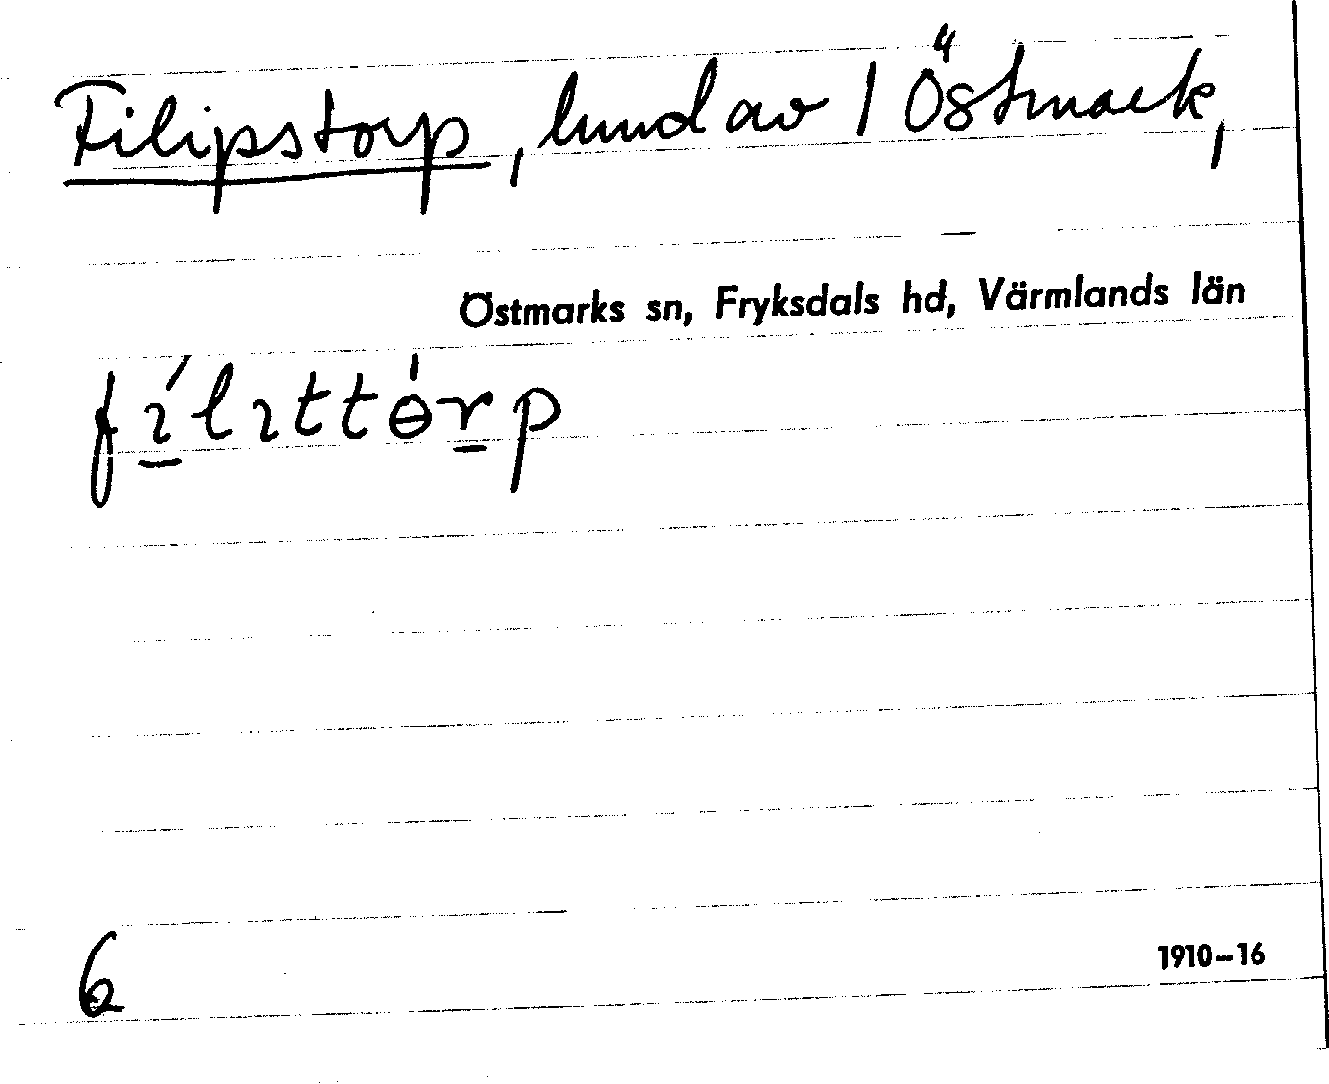 Filipstorp, lund av 1 4Östmark,
Östmarks sn, Fryksdals hd, Värmlands län
fı̱́lıttɵ̍ṟp
6
1910–16